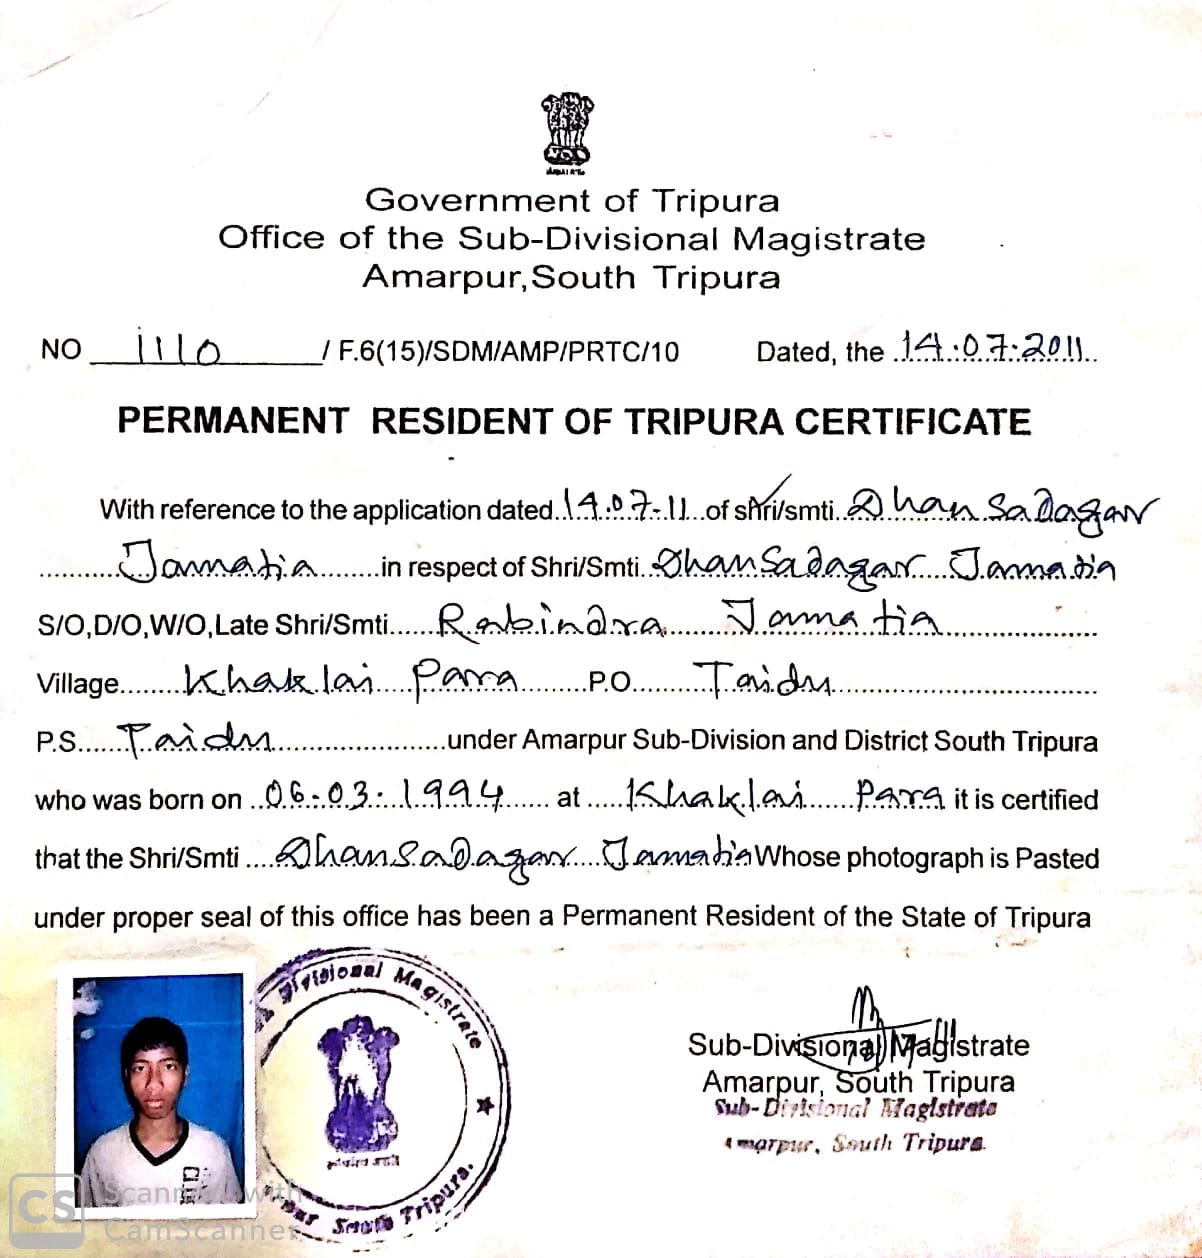 Government of Tripura
Office of the Sub-Divisional Magistrate
Amarpur,South Tripura
NO 1110 / F.6(15)/SDM/AMP/PRTC/10 Dated, the 14.07.2011
PERMANENT RESIDENT OF TRIPURA CERTIFICATE
With reference to the application dated 14.07-11 of shri/smti Dhan Sadagar
Jamatia in respect of Shri/Smti Dhan Sadagar Jamatia
S/O,D/O,W/O,Late Shri/Smti Rabindra Jamatia
Village Khaklai Para P.O Taidu
P.S Taidu under Amarpur Sub-Division and District South Tripura
who was born on 06-03-1994 at Khaklai Para it is certified
that the Shri/Smti Dhan Sadagar Jamatia Whose photograph is Pasted
under proper seal of this office has been a Permanent Resident of the State of Tripura
Divisional Magistrate
South Tripura.
Sub-Divisional Magistrate
Amarpur, South Tripura
Sub-Divisional Magistrate
Amarpur, South Tripura
CS Scanned with
CamScanner